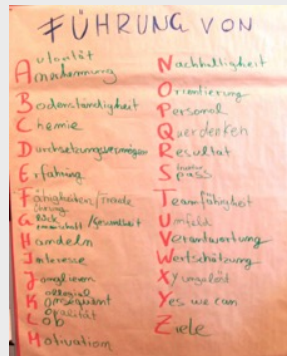 FÜHRUNG VON
Autorität
Anerkennung
Bodenständigkeit
Chemie
Durchsetzungsvermögen
Erfahrung
Fähigkeiten/
Glück
Handeln
Interesse
Jonglieren
Kollegial
Konsequent
Loyalität
Lob
Motivation
Nachhaltigkeit
Orientierung
Personal
Querdenken
Resultat
Spass
Teamfähigkeit
Umfeld
Verantwortung
Wertschätzung
XY ungelöst
Yes we can
Ziele